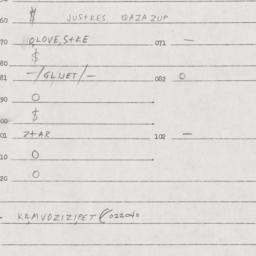 60 $ JUSTKES QAZAZUP
70 QLOVE,S+KE 071 —
$
80
81 —/GLNET/— 082 O
90 O
00 $
01 Z+AR 102 —
10 O
20 O
- KAMVOZIZIPET (022040